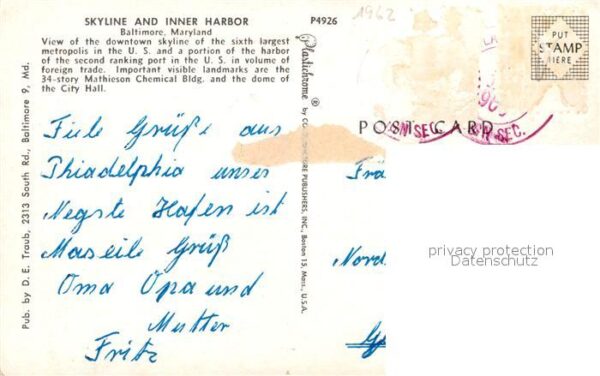 SKYLINE AND INNER HARBOR
Baltimore, Maryland
View of the downtown skyline of the sixth largest
metropolis in the U. S. and a portion of the harbor
of the second ranking port in the U. S. in volume of
foreign trade. Important visible landmarks are the
34-story Mathieson Chemical Bldg. and the dome of
the City Hall.
P4926
1962
PUT
STAMP
HERE
Pub. by D. E. Traub, 2313 South Rd., Baltimore 9, Md.
Plastichrome ® by PUBLISHERS, INC., Boston 15, Mass., U.S.A.
POST CARD
SEC.
SEC.
Fiele Grüße aus
Phiadelphia unser
Negste Hafen ist
Maseile Grüß
Oma Opa und
Mutter
Fritz
Frä
Nord
privacy protection
Datenschutz